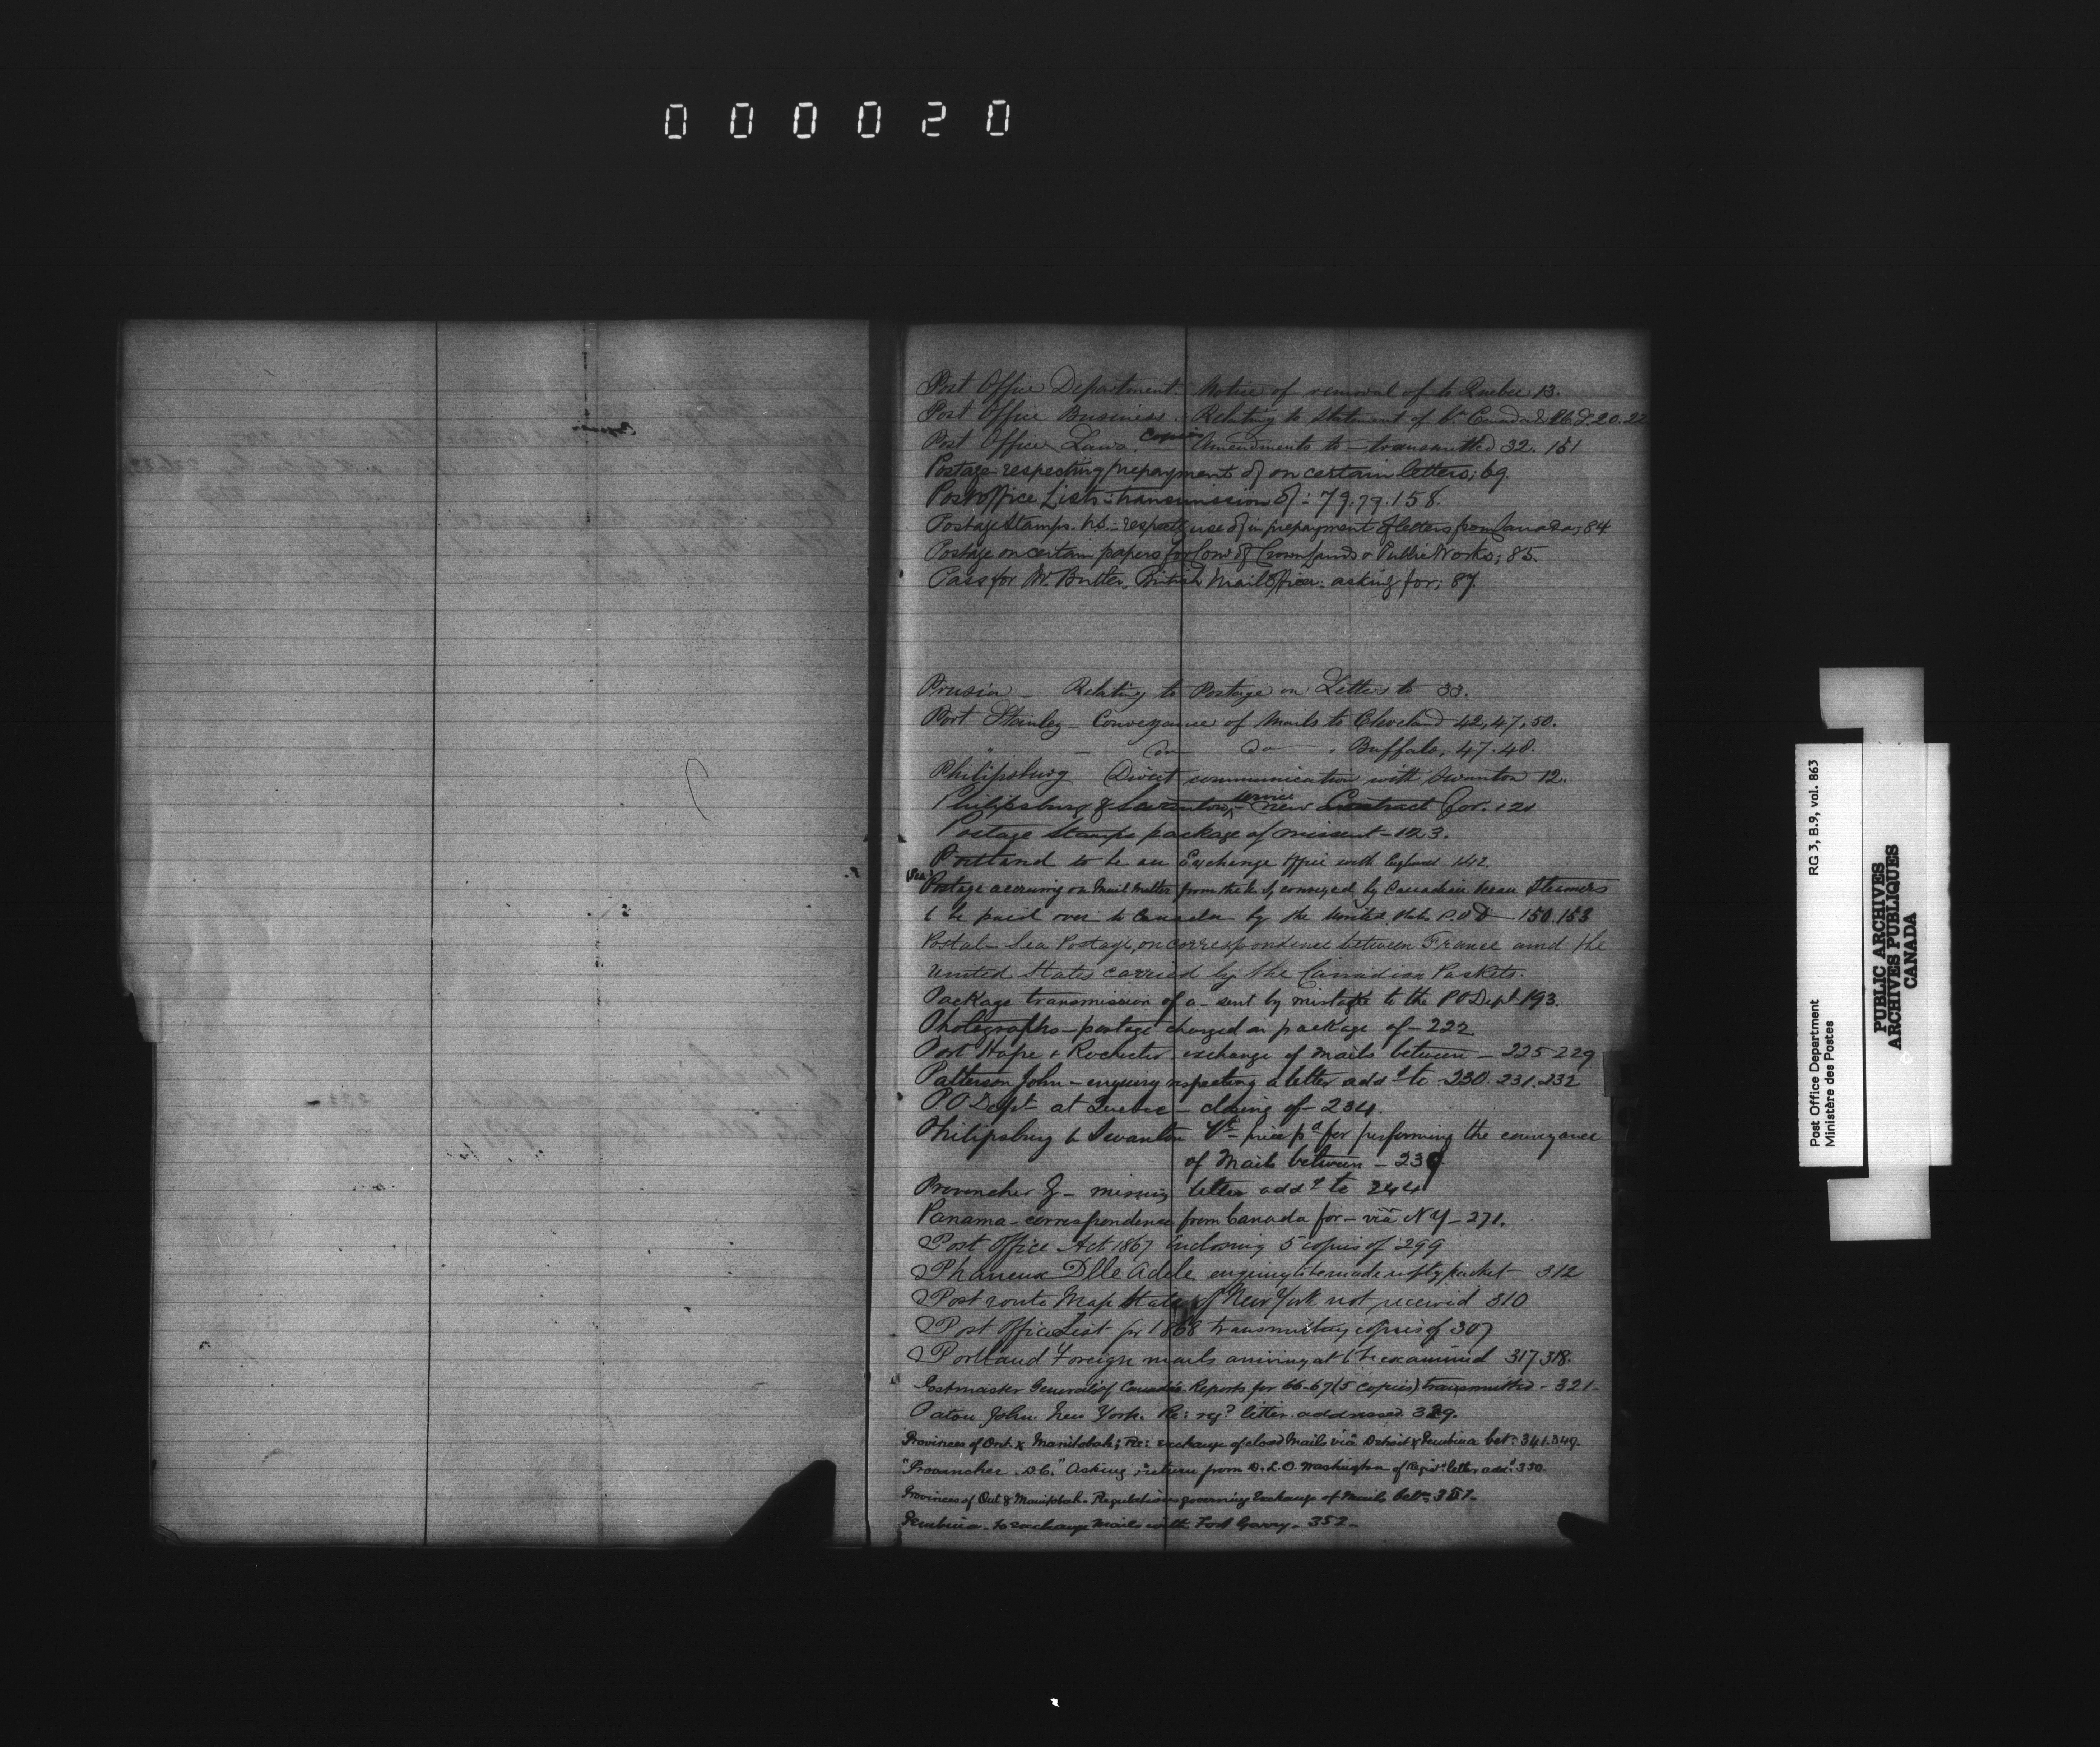 000020
Post Office Department. Notice of removal of to Quebec 13.
Post Office Business. Relating to Statement of 20.22
Post Office Laws. copies Amendments to - transmitted 32. 151
Postage respecting prepayment of on certain letters; 69.
Post office Lists: transmission of: 79.79.158.
Postage Stamps. U.S.: respectg use of in prepayment of letters from Canada; 84
Postage on certain papers for Comr of Crown Lands & Public Works; 85.
Pass for Mr. Butler, British Mail Officer. asking for; 87.
Prusia - Relating to Postage on Letters to 33.
Port Stanley - Conveyance of Mails to Cleveland 42, 47, 50.
" - Do Do . Buffalo, 47.48.
Philipsburg Direct communication with Swanton 12.
Philipsburg & Swanton, - new service Contract for. 121
Postage Stamps package of missent - 123.
Portland to be an Exchange Office with England 142.
(Sea) Postage accruing on Mail Matter from the conveyed by Canadian Ocean Steamers
to be paid over to Canada by the United States P.O.D - 150.153
Postal - Sea Postage, on correspondence between France and the
United States carried by the Canadian Packets.
Package transmission of a - sent by mistake to the P O Dept 193.
Photographs - postage charged on package of - 222
Port Hope & Rochester exchange of mails between - 225 229
Patterson John - enquiry respecting a letter addd to 230. 231. 232
P O Dept at Quebec - closing of - 234.
Philipsburg to Swanton Vt - price pd for performing the conveyance
of Mails between - 239
Provencher J - missing letter addd to 244
Panama - correspondence from Canada for - via N Y - 271.
Post Office Act 1867 inclosing 5 copies of 299
Phaneux Dlle Adele enquiry to be made respg packet - 312
Post route Map State of New York not received 310
Post Office List for 1868 transmitting copies of 307
Portland Foreign mails arriving at to be examined 317 318.
Postmaster General of Canada's Reports for 66-67 (5 copies) transmitted - 321 -
Paton John New York. Re: regd letter addressed 329.
Provinces of Ont. & Manitobah; Re: exchange of closed Mails via Detroit & Pembina betn 341.349 -
"Provencher. D.C." Asking return from D.L.O. Washington of Regisd letter addd 330.
Provinces of Ont & Manitobah - Regulations governing Exchange of Mails betn 351 -
Pembina - to exchange Mails with Fort Garry - 352 -
Post Office Department
Ministère des Postes
RG 3, B.9, vol. 863
PUBLIC ARCHIVES
ARCHIVES PUBLIQUES
CANADA